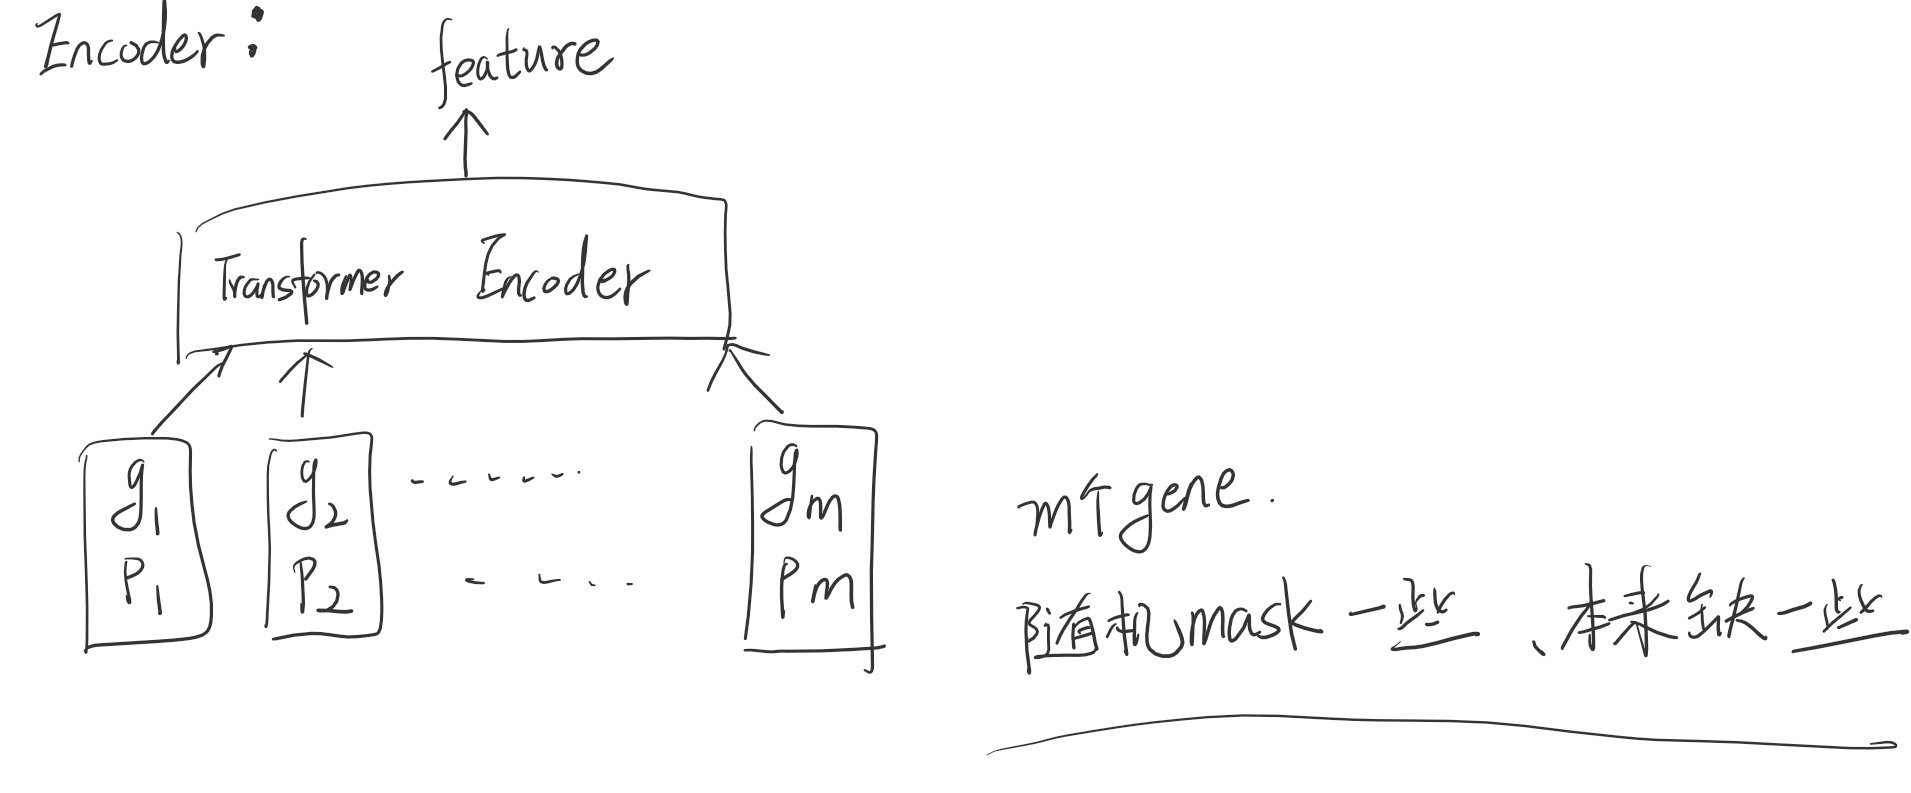 Encoder:
feature
Transformer Encoder
g1 g2 ...... gm
P1 P2 .... Pm
m个gene.
随机mask一些、本来缺一些